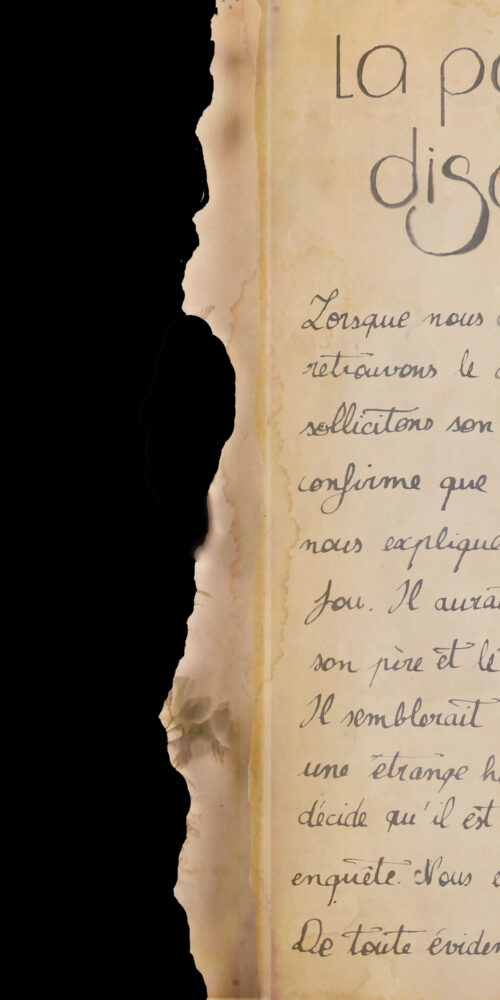 La po
disc
Lorsque nous
retrouvons le
sollicitons son
confirme que
nous explique
fou. Il aurai
son père et le
Il semblerait
une étrange h
décide qu'il est
enquête. Nous e
De toute éviden